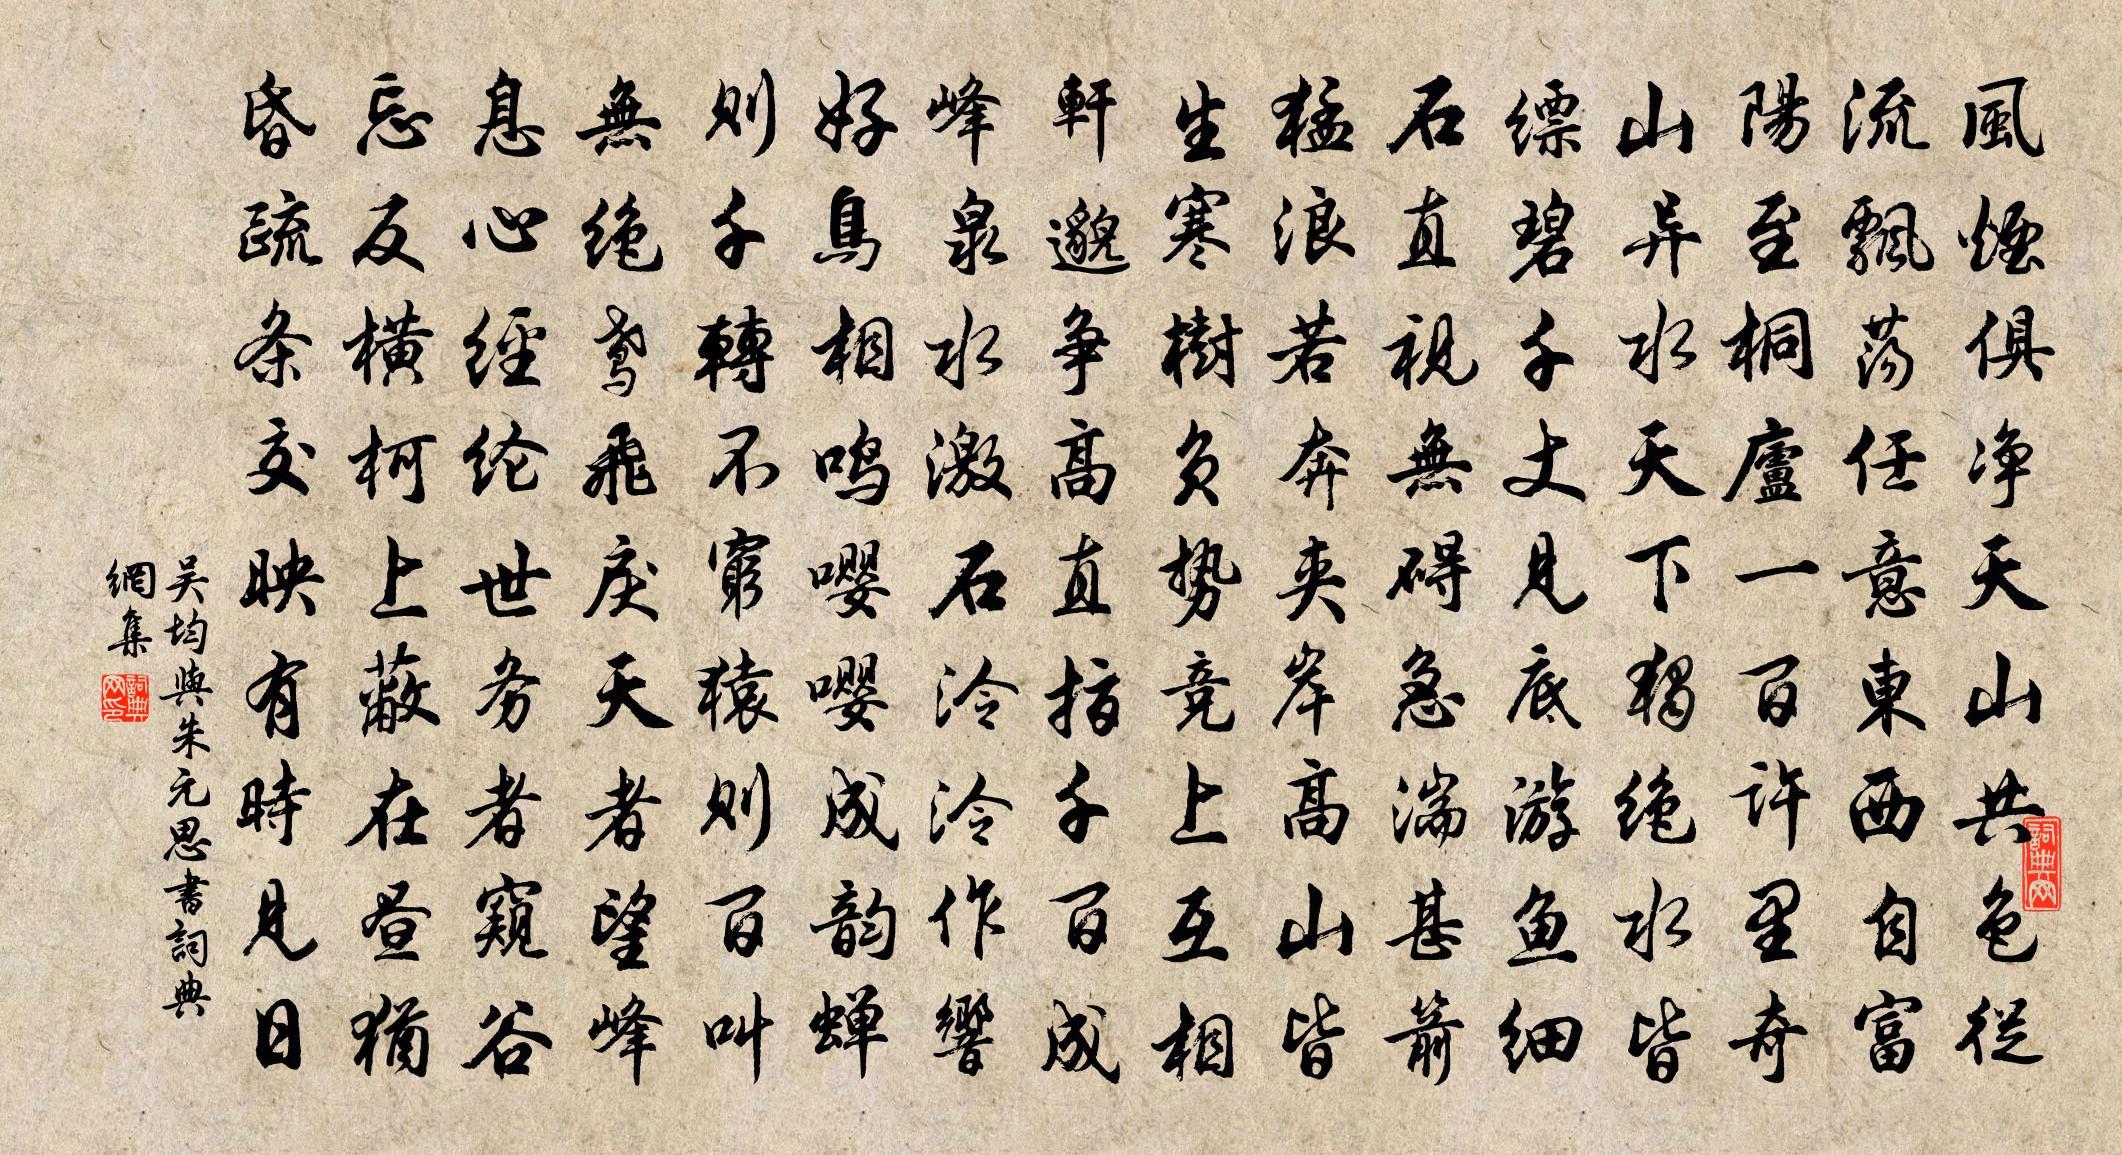 風煙俱净天山共色從
流飄荡任意東西自富
陽至桐廬一百許里奇
山异水天下獨絶水皆
缥碧千丈見底游魚细
石直視無碍急湍甚箭
猛浪若奔夹岸高山皆
生寒樹負势竞上互相
軒邈争高直指千百成
峰泉水激石泠泠作響
好鳥相鸣嘤嘤成韵蝉
則千轉不窮猿則百叫
無绝鸢飛戾天者望峰
息心經纶世务者窥谷
忘反橫柯上蔽在昼猶
昏疏条交映有時見日
吴均與朱元思書詞典
網集
詞典网
詞典网